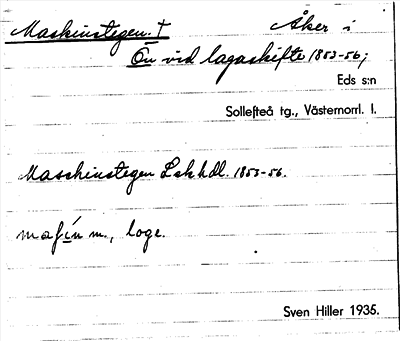 Maskinstegen. † Åker i
Ön vid lagaskifte 1853-56;
Eds s:n
Sollefteå tg., Västernorrl. l.
Maschinstegen Lskhdl. 1853-56.
maʃín m., loge.
Sven Hiller 1935.